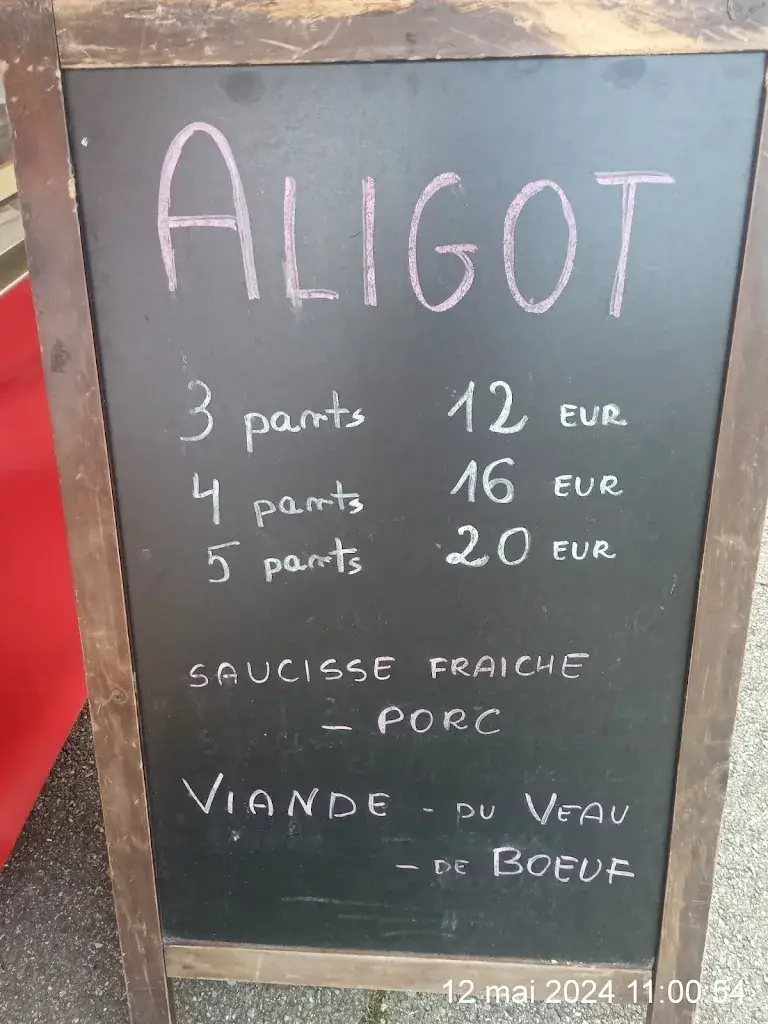 ALIGOT
3 parts 12 EUR
4 parts 16 EUR
5 parts 20 EUR
SAUCISSE FRAICHE
- PORC
VIANDE - DU VEAU
- DE BOEUF
12 mai 2024 11:00:54